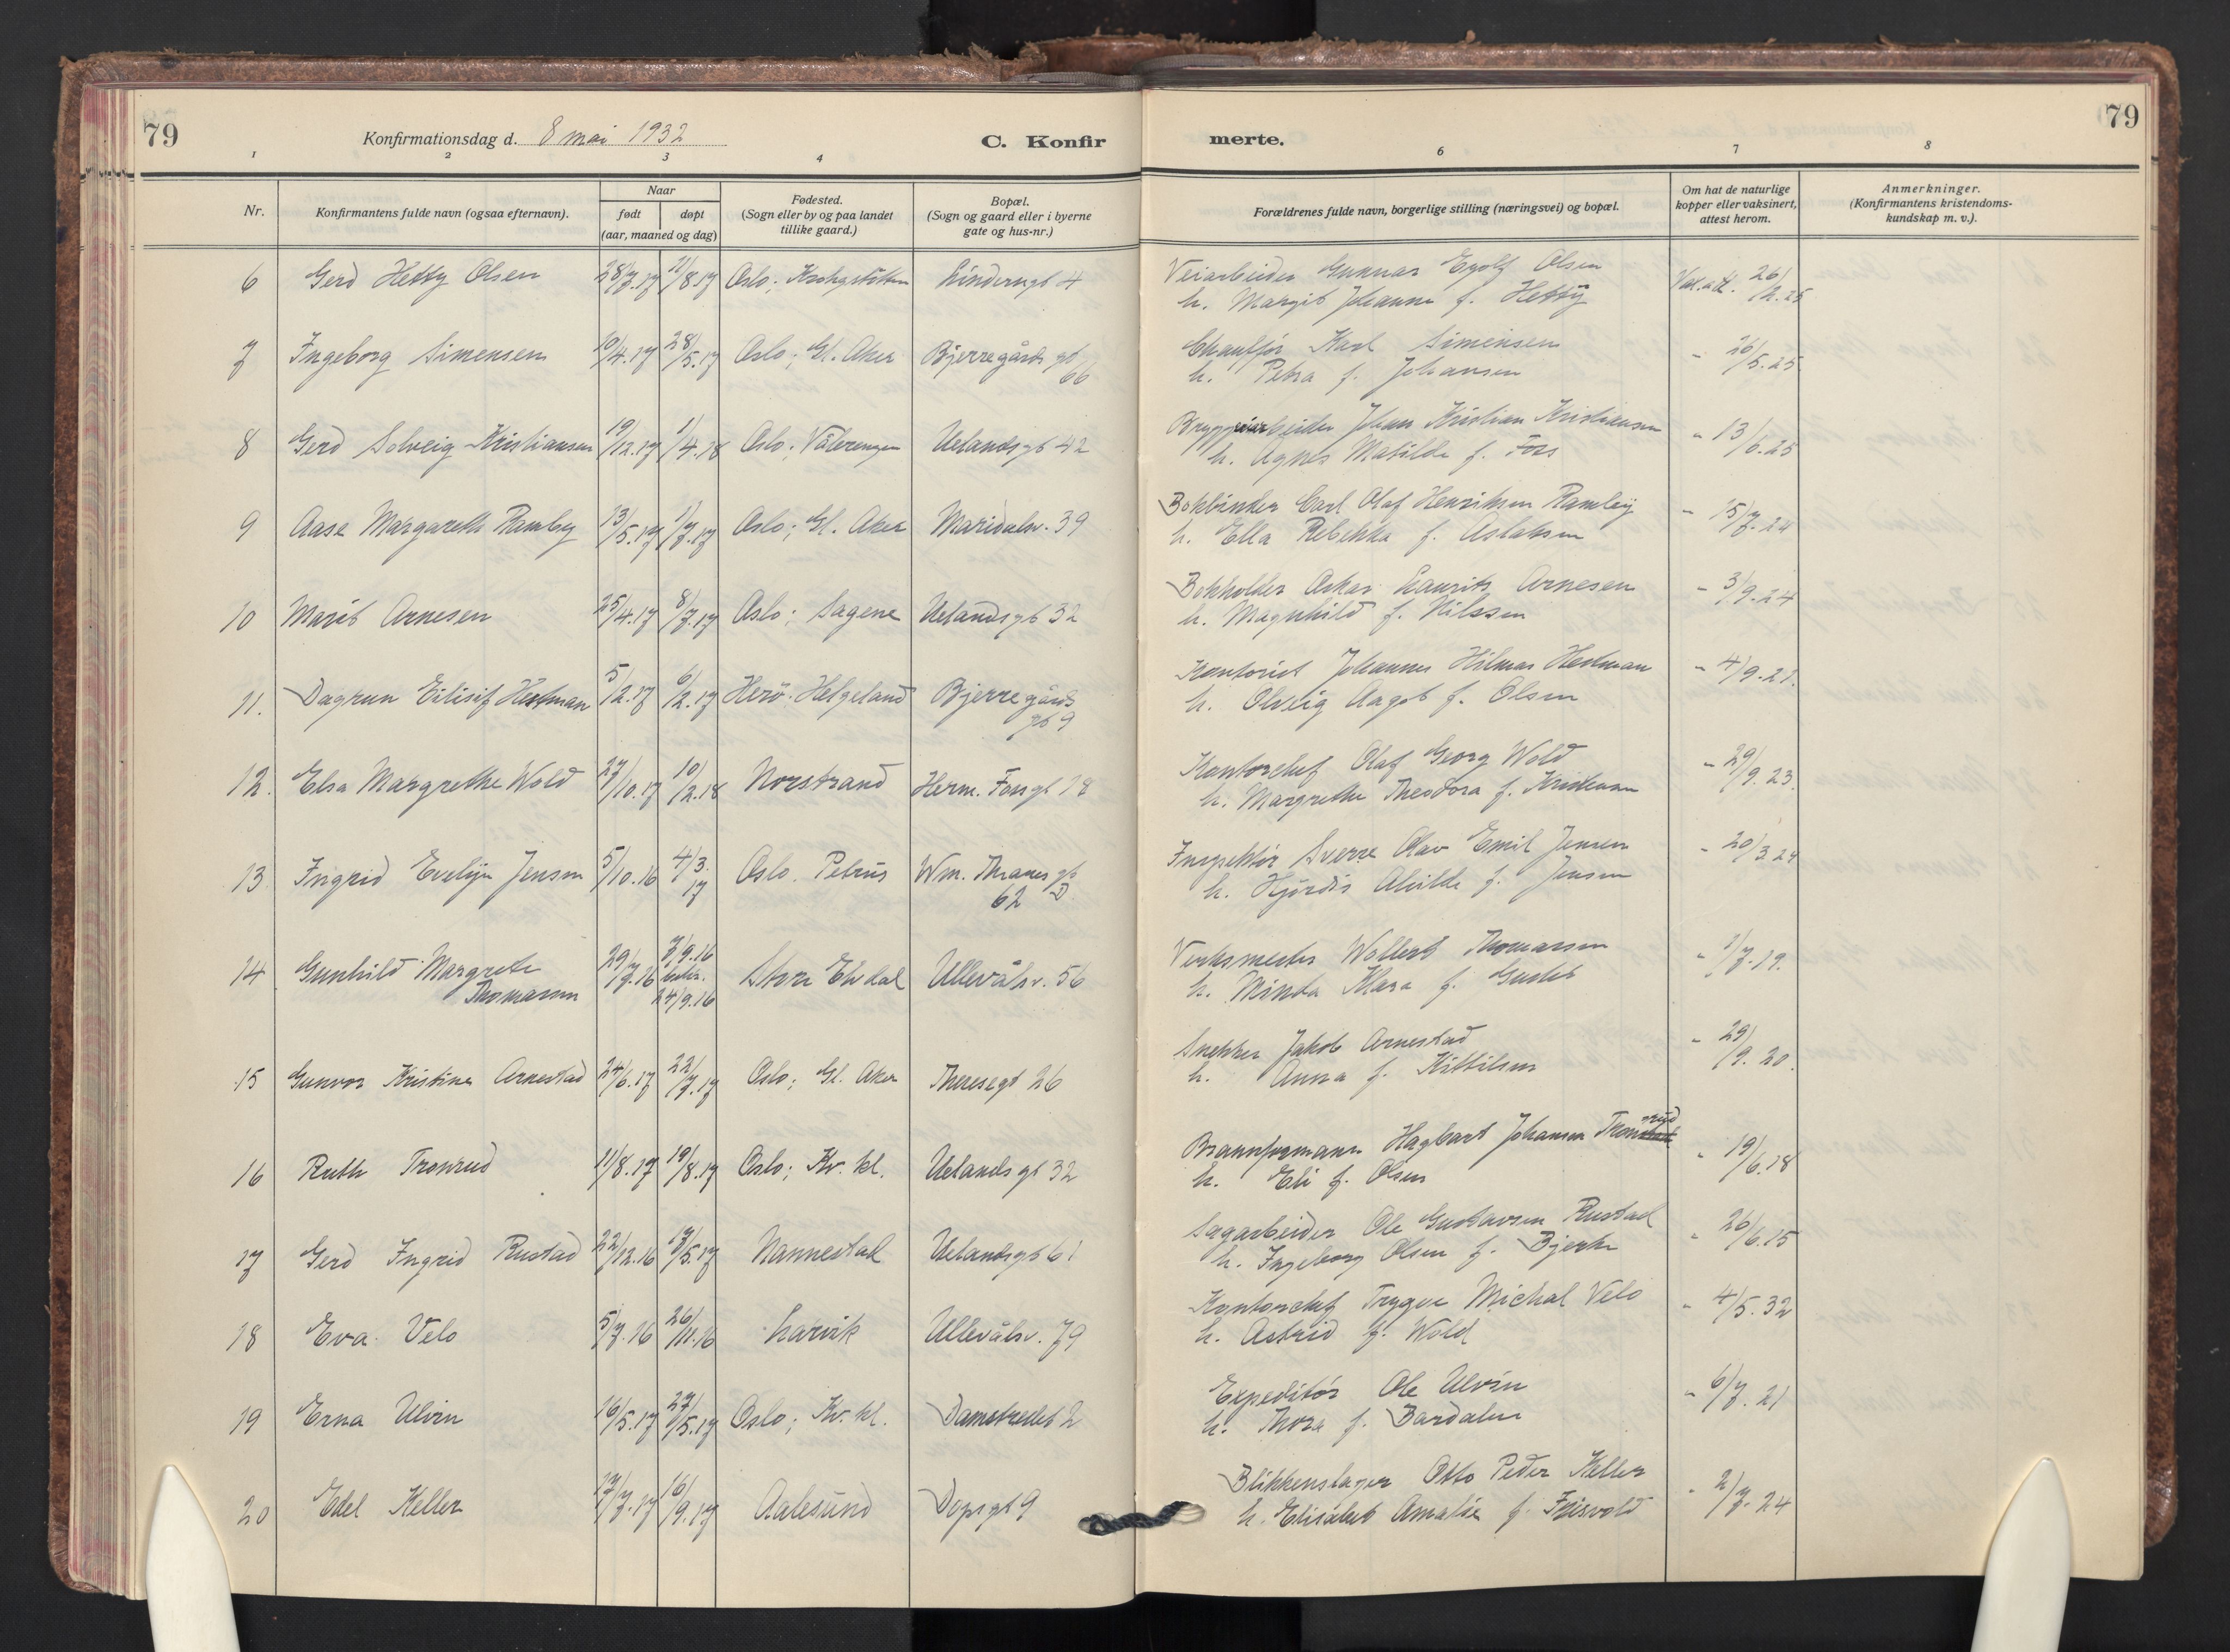 79
Konfirmationsdag d. 8 mai 1932
C. Konfir
merte.
79
1 2 3 4 6 7 8
Nr.
Konfirmantens fulde navn (ogsaa efternavn).
Naar
født døpt
(aar, maaned og dag)
Fødested.
(Sogn eller by og paa landet
tillike gaard.)
Bopæl.
(Sogn og gaard eller i byerne
gate og hus-nr.)
Forældrenes fulde navn, borgerlige stilling (næringsvei) og bopæl.
Om hat de naturlige
kopper eller vaksinert,
attest herom.
Anmerkninger.
(Konfirmantens kristendoms-
kundskap m. v.).
6 Gerd Hetty Olsen 28/7.17 11/8.17 Oslo; 4 Veiarbeider Gunnar Egolf Olsen
h. Margit Johanne f. Hetty
7 Ingeborg Simensen 10/4.17 28/5.17 Oslo; Gl. Aker Bjerregårds gt
66
Chauffør Karl Simensen - 26/5.25
h. Petra f. Johansen
8 Gerd Solveig Kristiansen 19/12.17 1/4.18 Oslo; Vålerengen Uelandsgt 42 Bryggeriarbeider Johan Kristian Kristiansen - 13/6.25
h. Agnes Matilde f. Foss
9 Aase Margareth Ramby 13/5.17 1/7.17 Oslo; Gl. Aker Maridalsv. 39 Bokbinder Carl Olaf Henriksen Ramby - 15/7.24
h. Ella Rebekka f. Aslaksen
10 Marit Arnesen 25/4.17 8/7.17 Oslo; Sagene Uelandsgt 32 Bokholder Oskar Laurits Arnesen - 3/9.24
h. Magnhild f. Nilssen
11. Dagrun Eilisif Hestman 5/2.17 6/2.17 Herø. Helgeland Bjerregårds
gt 9
Kontorist Johannes Hilmar Hestman - 4/9.21.
h. Olveig Aagot f. Olsen
12. Elsa Margrethe Wold 27/10.17 10/2.18 Norstrand Herm. Fossgt 18 Kontorchef Olaf Georg Wold - 29/9.23.
h. Margrethe Theodora f. Kristensen
13 Ingrid Evelyn Jensen 5/10.16 4/3.17 Oslo. Petrus Wm. Thranes gt
62 D
Inspektør Sverre Olav Emil Jensen - 20/3.24
h. Hjørdis Alvilde f. Jensen
14 Gunhild Margrete
Thomassen
29/7.16 7/9.16
24/9.16
Store Elvdal Ullevålsv. 56 Verksmester Wollert Thomassen - 1/7.19.
h. Minda Klara f.
15 Gunvor Kristine Arnestad 24/6.17 22/7.17 Oslo; Gl. Aker Theresegt 26 Snekker Jakob Arnestad - 29/9.20.
h. Anna f. Kittilsen
16 Ruth Tronrud 11/8.17 19/8.17 Oslo; Kv. kl. Uelands gt 32 Brannformann Hagbart Johansen Tronrud - 19/6.18
h. Eli f. Olsen
17 Gerd Ingrid Rustad 22/12.16 17/5.17 Nannestad Uelandsgt 61 Sagarbeider Ole Gustavsen Rustad - 26/6.15
h. Ingeborg Olsen f. Bjerke
18 Eva Velo 5/7.16 26/11.16 Larvik Ullevålsv. 79 Kontorchef Trygve Michal Velo - 4/5.32
h. Astrid f. Wold
19 Erna Ulvin 16/5.17 27/5.17 Oslo; Kv. kl. Damstredet 2 Expeditør Ole Ulvin - 6/7.21
h. Thora f. Bardalen
20 Edel Keller 17/7.17 16/9.17 Aalesund Dopsgt 9 Blikkenslager Otto Peder Keller - 2/7.24
h. Elisabet Amalie f. Frisvold